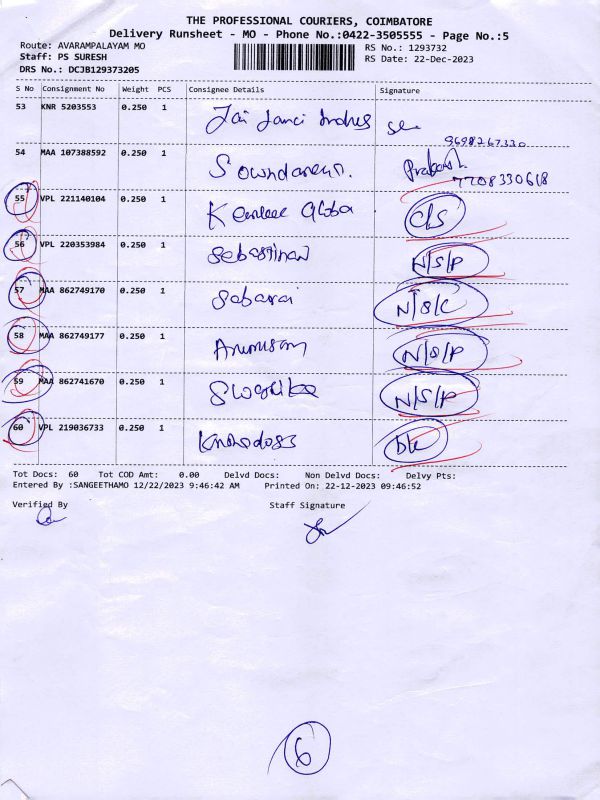 THE PROFESSIONAL COURIERS, COIMBATORE
Delivery Runsheet - MO - Phone No.:0422-3505555 - Page No.:5
Route: AVARAMPALAYAM MO
RS No.: 1293732
Staff: PS SURESH
RS Date: 22-Dec-2023
DRS No.: DCJB129373205
S No Consignment No Weight PCS Consignee Details Signature
53 KNR 5203553 0.250 1
9698267330
54 MAA 107388592 0.250 1 Prakash
7708330618
55 VPL 221140104 0.250 1 C/S
56 VPL 220353984 0.250 1 N/S/P
57 MAA 862749170 0.250 1 N/S/C
58 MAA 862749177 0.250 1 N/S/P
59 MAA 862741670 0.250 1 N/S/P
60 VPL 219036733 0.250 1
Tot Docs: 60 Tot COD Amt: 0.00 Delvd Docs: Non Delvd Docs: Delvy Pts:
Entered By :SANGEETHAMO 12/22/2023 9:46:42 AM Printed On: 22-12-2023 09:46:52
Verified By Staff Signature
6